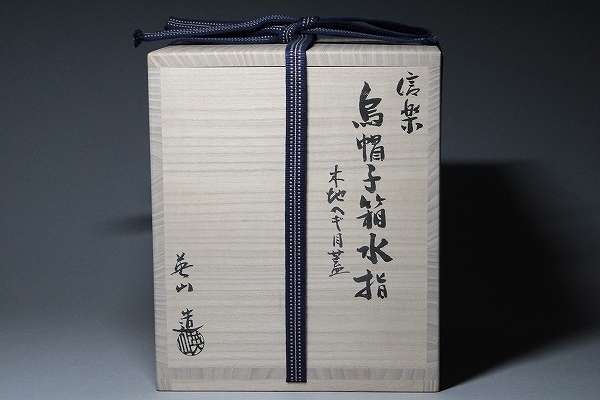 信楽
烏帽子箱水指
木地ヘギ目蓋
英山造